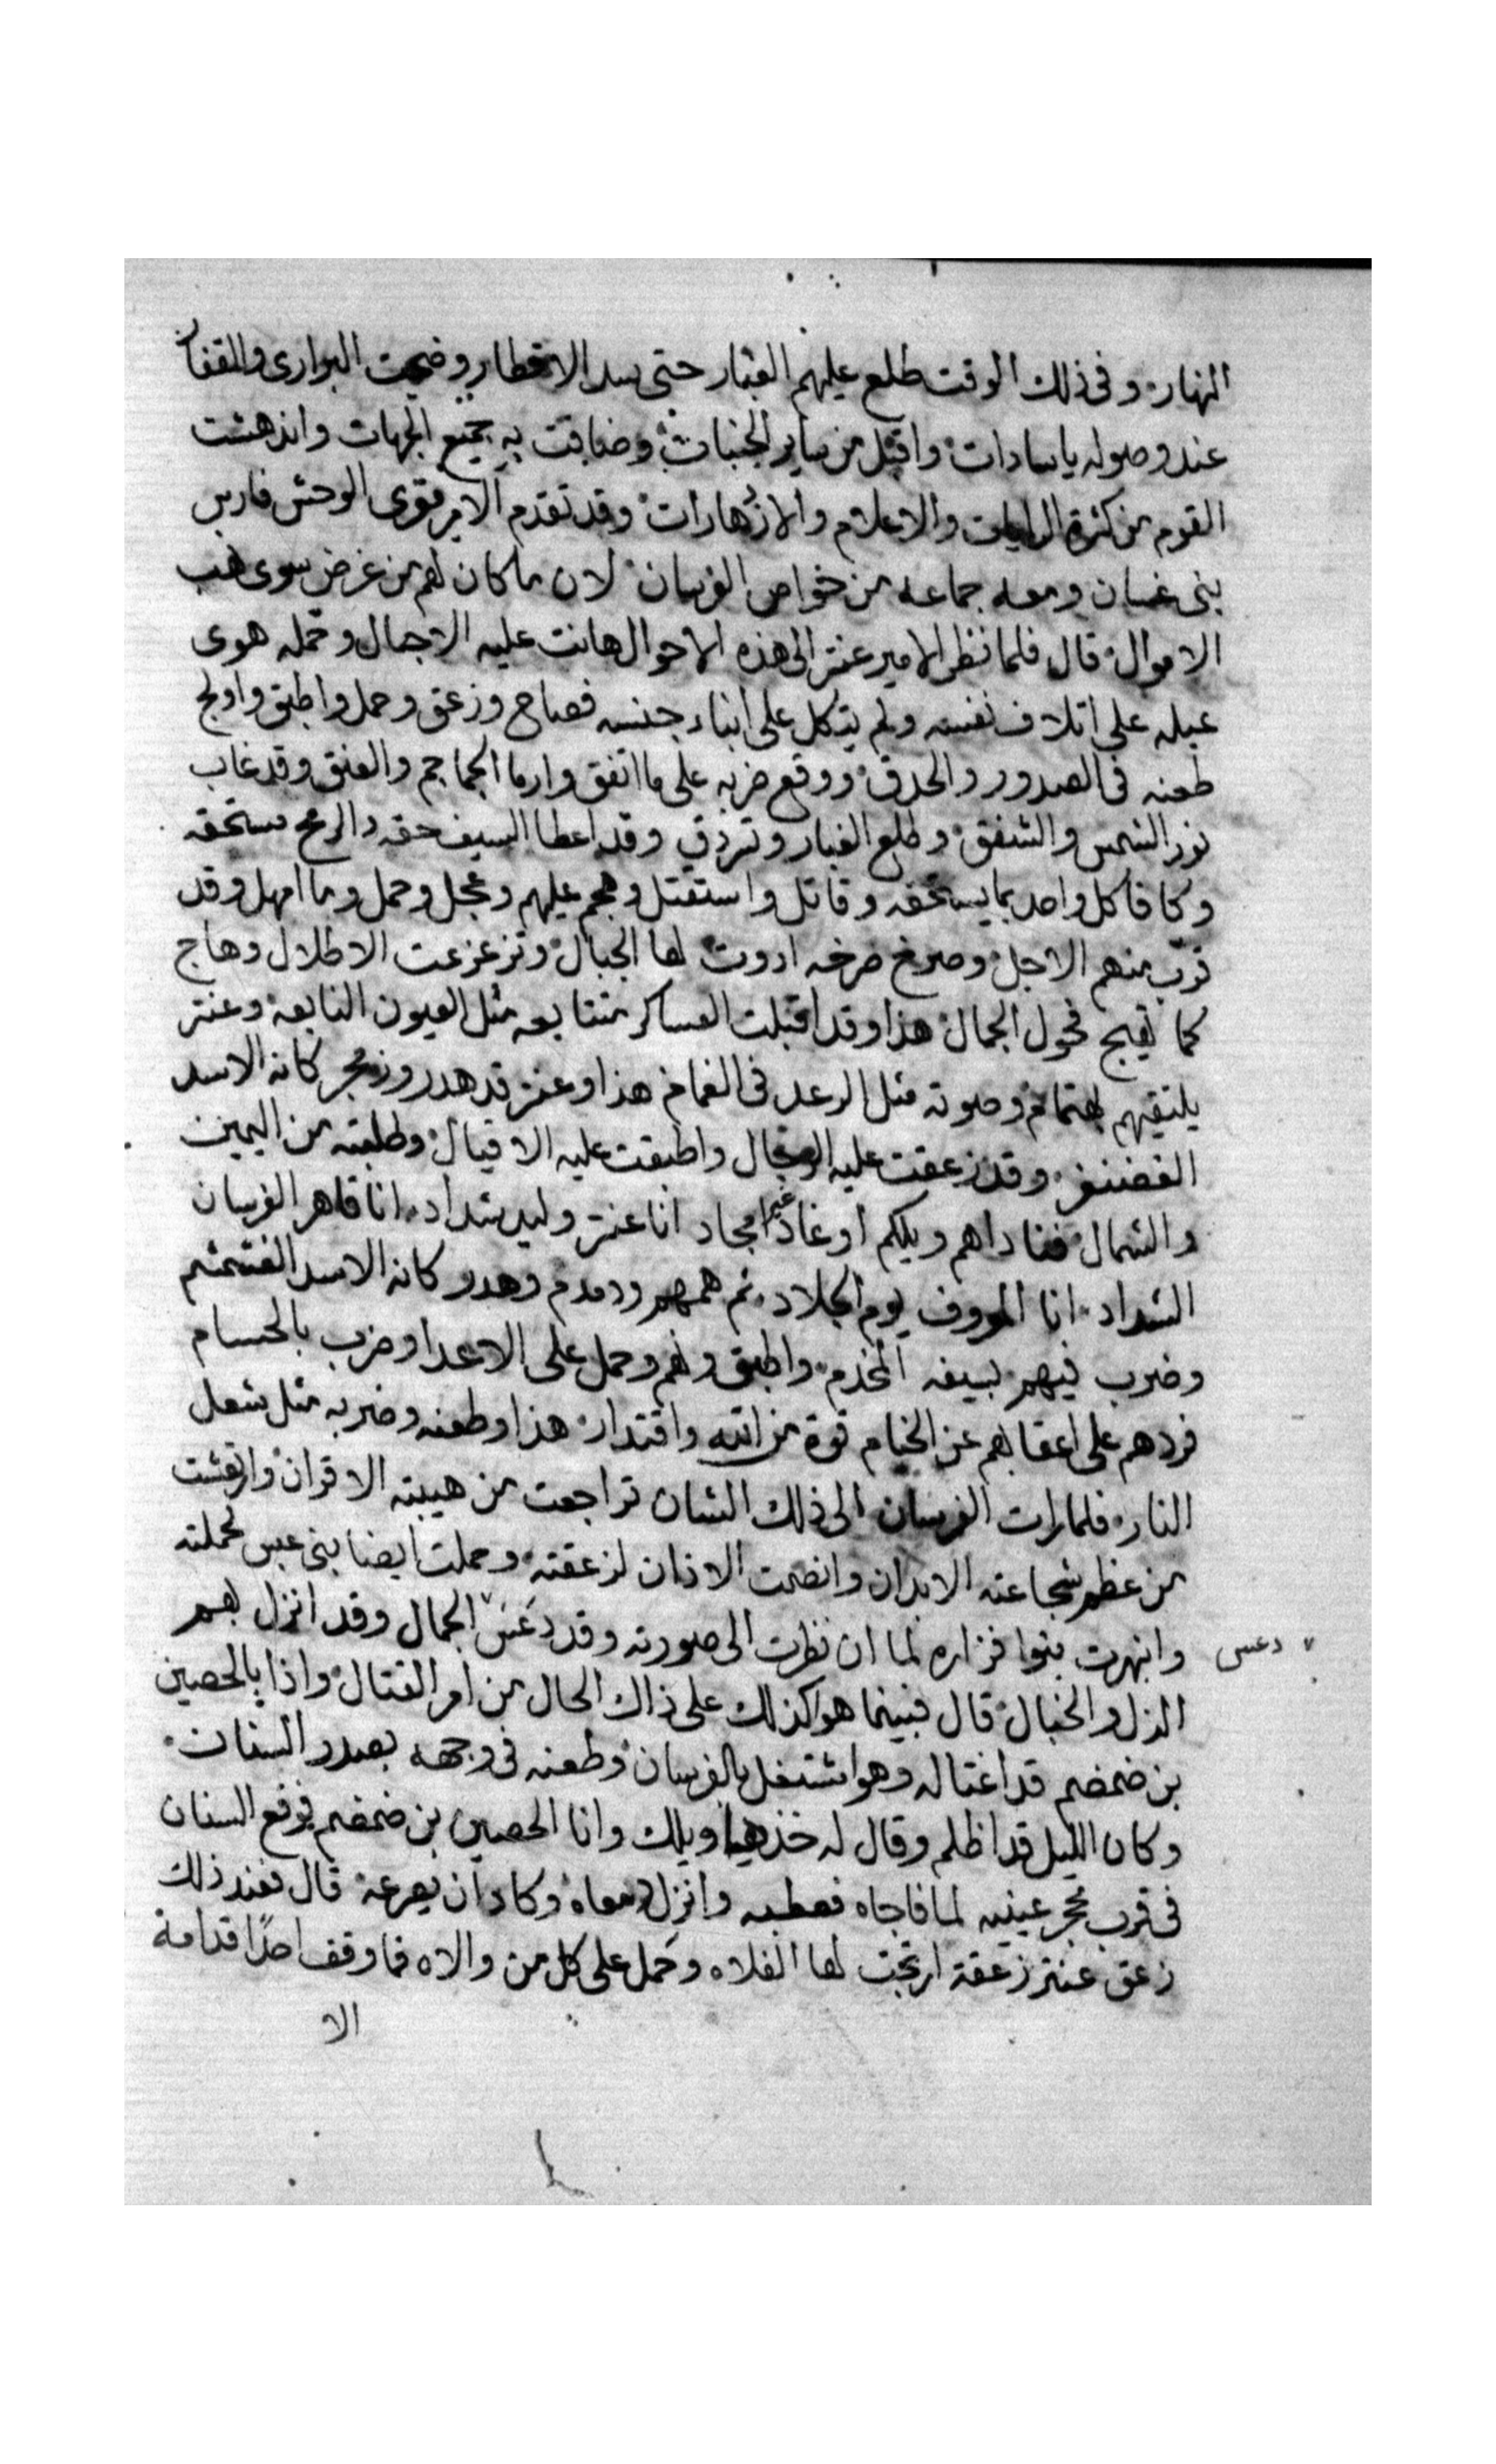 النهار وفى ذلك الوقت طلع عليهم الغبار حتى سد الاقطار وضجت البرارى والقفار
عند وصوله ياسادات واقبل من ساير الجنبات وضاقت به جميع الجهات واندهشت
القوم من كثرة الرايات والاعلام والازدهارات وقد تقدم الامير مقرى الوحش فارس
بنى غسان ومعه جماعه من خواص الفرسان لان ما كان لهم من غرض سوى نهب
الاموال قال فلما نظر الامير عنتر الى هذه الاحوال هانت عليه الاجال وحمله هوى
عبله على اتلاف نفسه ولم يتكل على ابناء جنسه فصاح وزعق وحمل واطبق واولج
طعنه فى الصدور والحدق ووقع ضربه على ما اتفق وارما الجماجم والعنق وقد غاب
نور الشمس والشفق وطلع الغبار وتردق وقد اعطا السيف حقه والرمح مستحقه
وكافا كل واحد بما يستحقه وقاتل واستقتل وهجم عليهم وعجل وحمل وما امهل وقد
قرب منهم الاجل وصرخ صرخه ادوت لها الجبال وتزعزعت الاطلال وهاج
كما تهيج فحول الجمال هذا وقد اقبلت العساكر متتابعه مثل العيون النابعه وعنتر
يلتقيهم باهتمام وصوته مثل الرعد فى الغمام هذا وعنتر قد هدر وزمجر كانه الاسد
الغضنفر وقد زعقت عليه الرجال واطبقت عليه الاقيال وطلبته من اليمين
والشمال فناداهم ويلكم اوغاد غير امجاد انا عنتر وليد شداد انا قاهر الفرسان
الشداد انا المعروف يوم الجلاد ثم همهم ودمدم وهدر كانه الاسد الغشمشم
وضرب فيهم بسيفه المخذم واطبق ولهم وحمل على الاعدا وضرب بالحسام
فردهم على اعقابهم عن الخيام قوة من الله واقتدار هذا وطعنه وضربه مثل شعل
النار فلما رات الفرسان الى ذلك الشان تراجعت من هيبته الاقران وارتعشت
من عظم شجاعته الابدان وانصمت الاذان لزعقته وحملت ايضا بنى عبس لحملته
وانبهرت بنوا فزاره لما ان نظرت الى صورته وقد دَعَسَ الجمال وقد انزل بهم
دعس
الذل والخبال قال فبينما هو كذلك على ذاك الحال من امر القتال واذا بالحصين
بن ضمضم قد اغتاله وهو مشتغل بالفرسان وطعنه فى وجهه بصدر السنان
وكان الليل قد اظلم وقال له خذها ويلك وانا الحصين بن ضمضم فوقع السنان
فى قرب محجر عينيه لما فاجاه فعطبه وانزل دمعاه وكاد ان يصرعه قال فعند ذلك
زعق عنتر زعقة ارتجت لها الفلاه وحمل على كل من والاه فما وقف احدًا قدامة
الا